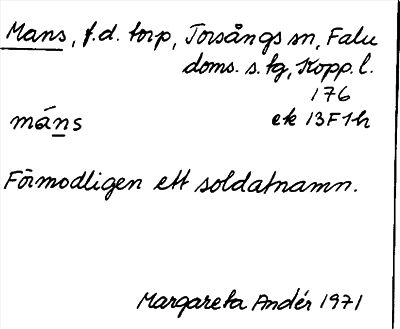 Mans, f.d. torp, Torsångs sn, Falu
doms. s. tg, Kopp. l.
176
måns ek 13F1h
Förmodligen ett soldatnamn.
Margareta Andér 1971